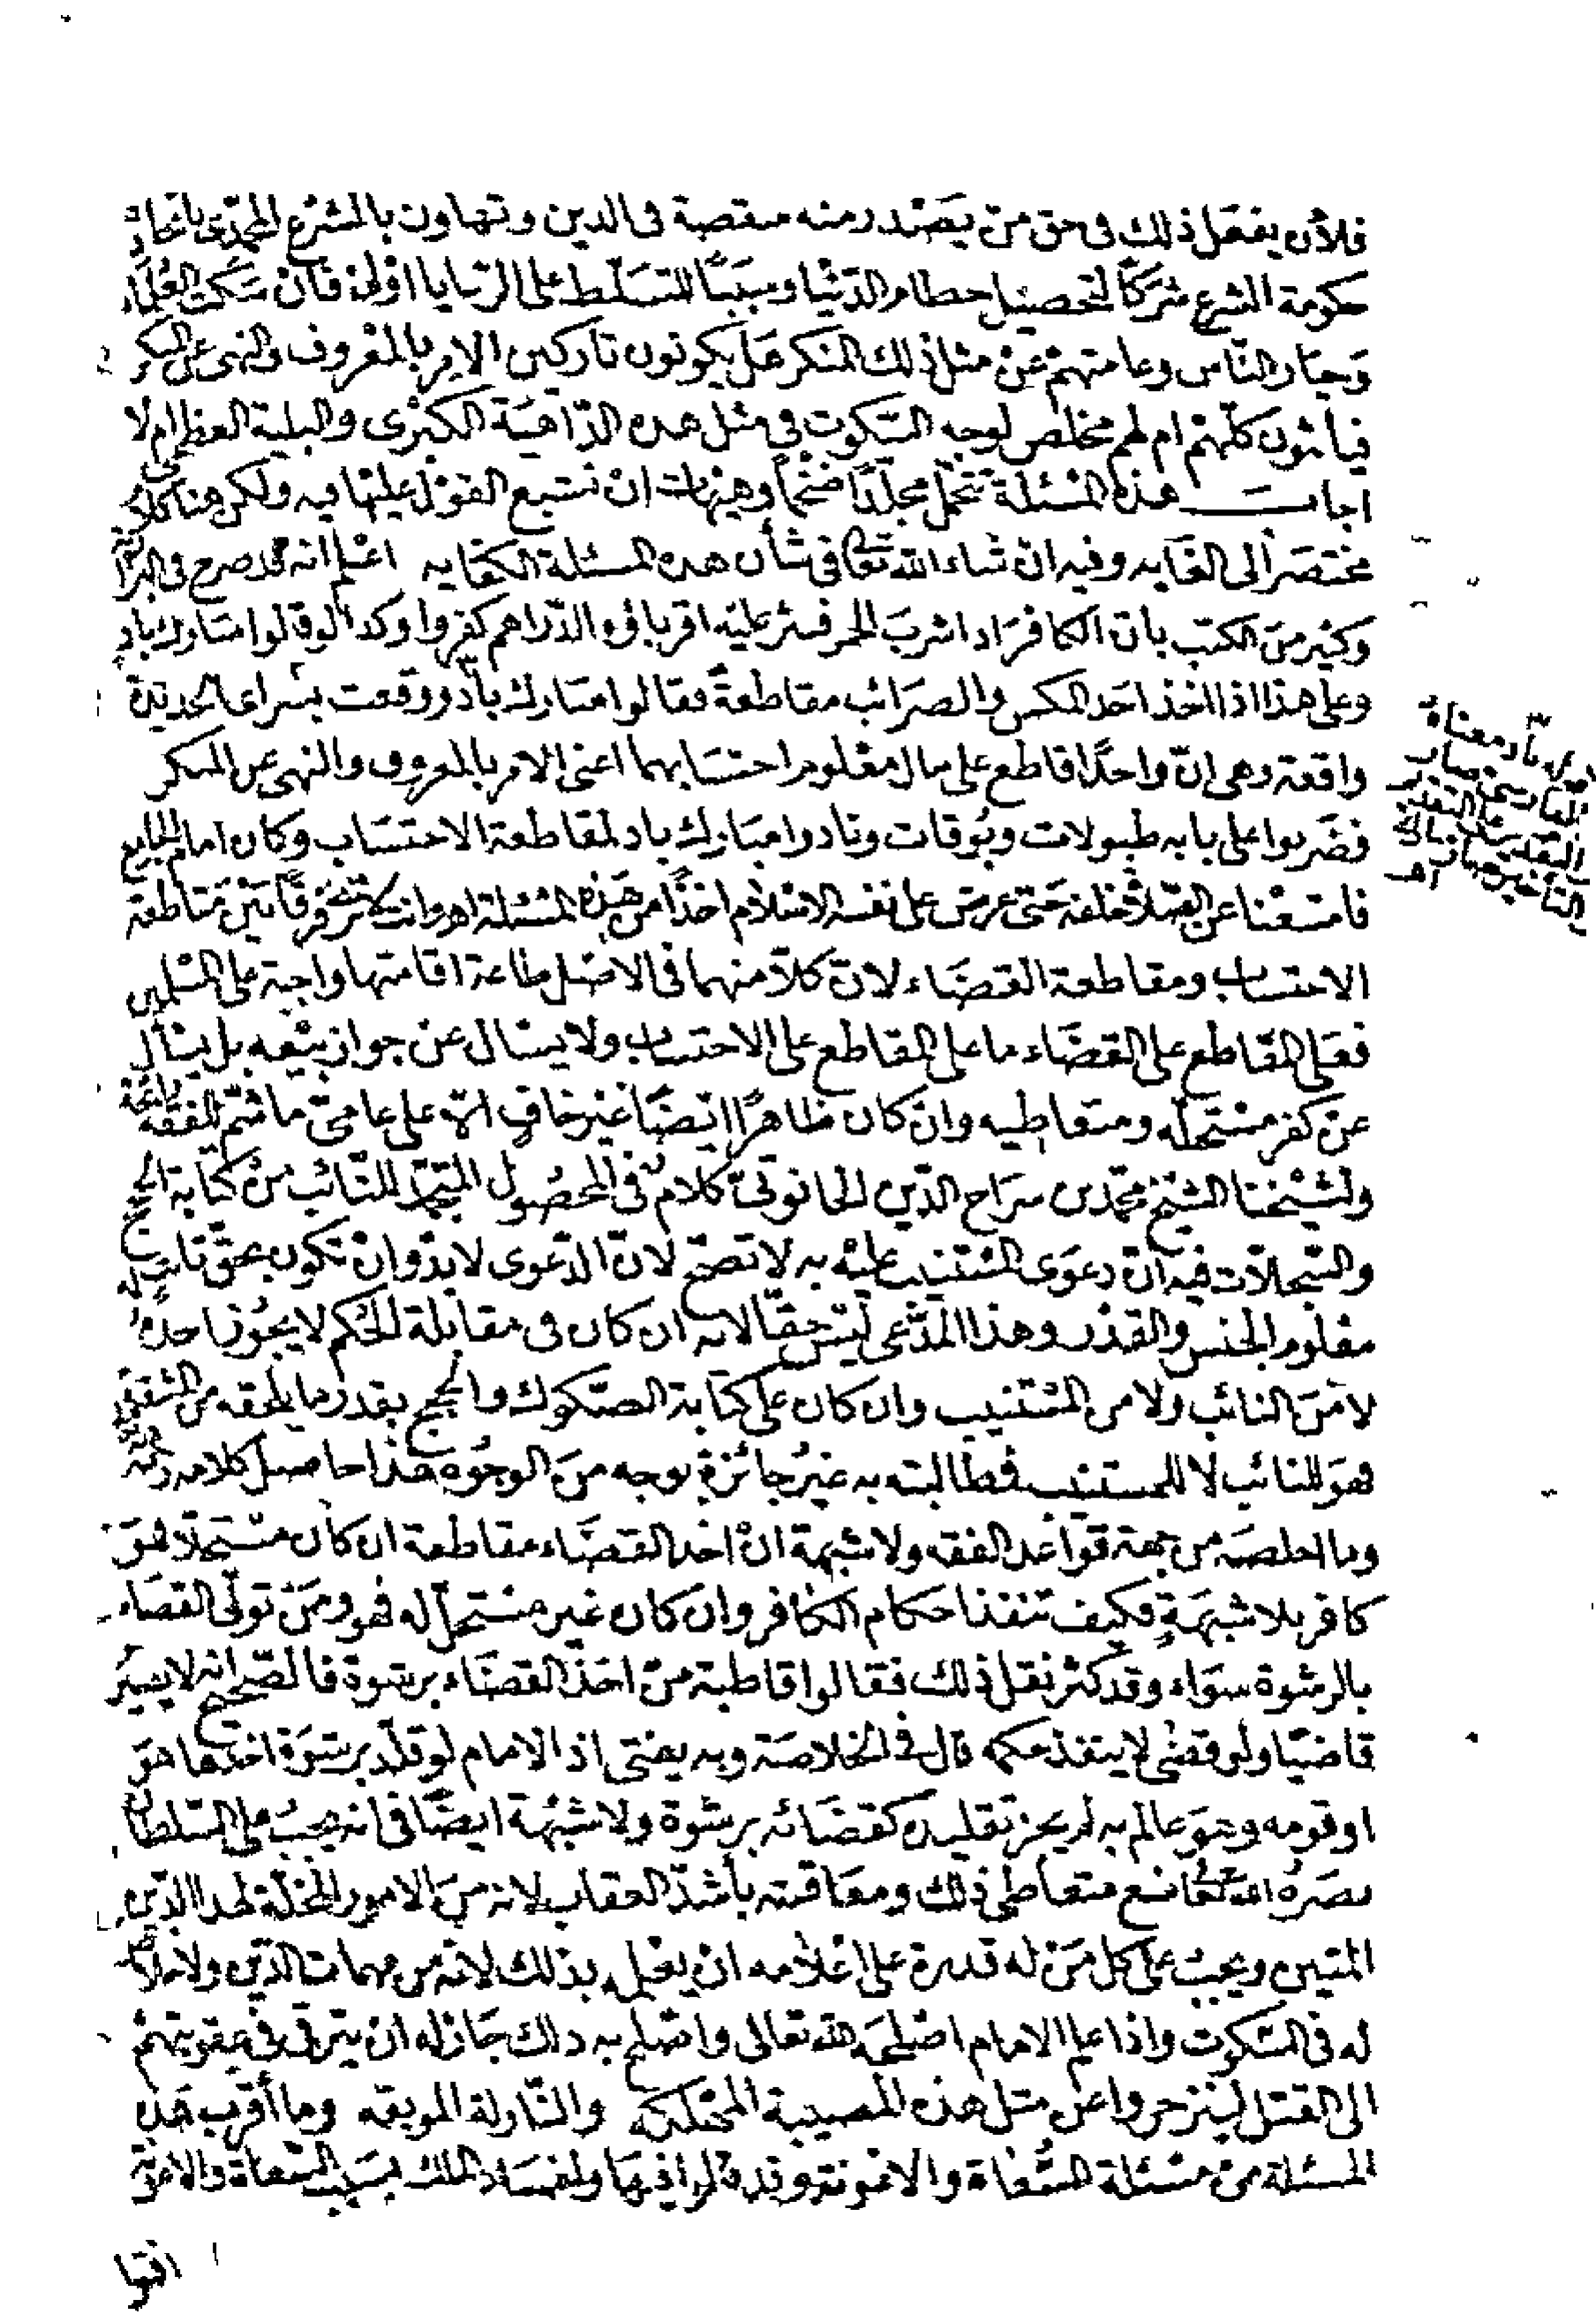 فلأن يفعل ذلك في حق من يصدر منه منقصة في الدين وتهاون بالشرع المحمدي باتخاذ
حكومة الشرع شركا لتحصيل حطام الدنيا وسببا للتسلط على الرعايا اولى فان سكت العلماء
وخيار الناس وعامتهم عن مثل ذلك المنكر هل يكونون تاركين الامر بالمعروف والنهي عن المنكر
فيأثمون كلهم ام لهم مخلص لوجه السكوت في مثل هذه الداهية الكبرى والبلية العظمى ام لا
اجاب هذه المسئلة تحتمل مجلدا ضخما وهيهات ان نستبع القول عليها فيه ولكن هنا كلام
مختصر الى الغايه وفيه ان شاء الله تعالى في شأن هذه المسئلة الكفايه اعلم انه قد صرح في البزازية
وكثير من الكتب بان الكافر اذا شرب الخمر فنثر عليه اقرباؤه الدراهم كفروا وكذا لو قالوا مبارك باد
وعلى هذا اذا اخذ احد المكس والضرائب مقاطعة فقالوا مبارك باد ووقعت بسراي الجديدة
واقعة وهي ان واحدا قاطع على مال معلوم احتسابهما اعني الامر بالمعروف والنهي عن المنكر
فضربوا على بابه طبولات وبوقات ونادوا مبارك باد لمقاطعة الاحتساب وكان امام الجامع
فامتنعنا عن الصلاة خلفه حتى عرض على نفسه الاسلام اخذا من هذه المسئلة اهـ وانت لا ترى فرقا بين مقاطعة
الاحتساب ومقاطعة القضاء لان كلا منهما في الاصل طاعة اقامتها واجبة على المسلمين
فعلى المقاطع على القضاء ما على المقاطع على الاحتساب ولا يسال عن جواز بيعه بل يسأل
عن كفر مستحله ومتعاطيه وان كان ظاهرا ايضا غير خاف الا على عامي ما شم للفقه رائحة
ولشيخنا الشيخ محمد بن سراج الدين الحانوتي كلام في المحصول المتحصل للنائب من كتابة الحجج
والسجلات فيه ان دعوى المستنيب عليه به لا تصح لان الدعوى لا بد وان تكون بحق ثابت له
معلوم الجنس والقدر وهذا المدعى ليس حقا لانه ان كان في مقابلة الحكم لا يجوز اخذه
لا من النائب ولا من المستنيب وان كان على كتابة الصكوك والحجج بقدر ما يلحقه من المشقة
فهو للنائب لا للمستنيب فمطالبته به غير جائزة بوجه من الوجوه هذا حاصل كلامه رحمه الله
وما اخلصه من جهة قواعد الفقه ولا شبهة ان اخذ القضاء مقاطعة ان كان مستحلا فهو
كافر بلا شبهة فكيف تنفذ احكام الكافر وان كان غير مستحل له فهو ومن تولى القضاء
بالرشوة سواء وقد كثر نقل ذلك فقالوا قاطبة من اخذ القضاء برشوة فالصحيح انه لا يصير
قاضيا ولو قضى لا ينفذ حكمه قال في الخلاصة وبه يفتى اذ الامام لو قلد برشوة اخذها هو
او قومه وهو عالم به لم يجز تقليده كقضائه برشوة ولا شبهة ايضا في انه يجب على السلطان
نصره الله تعالى منع متعاطي ذلك ومعاقبته بأشد العقاب لانه من الامور المخلة لهذا الدين
المتين ويجب على كل من له قدرة على اعلامه ان يعمله بذلك لانه من مهمات الدين ولا مخلص
له في السكوت واذا علم الامام اصلحه الله تعالى واصلح به ذلك جاز له ان يترقى في عقوبتهم
الى القتل لينزجروا عن مثل هذه المصيبة المهلكة والنازلة الموبقه وما أقرب هذه
المسئلة من مسئلة السعاة والاعونة وقد قالوا فيها ولفساد الملك بسبب السعاة والاعونة
افتوا
باد معناه